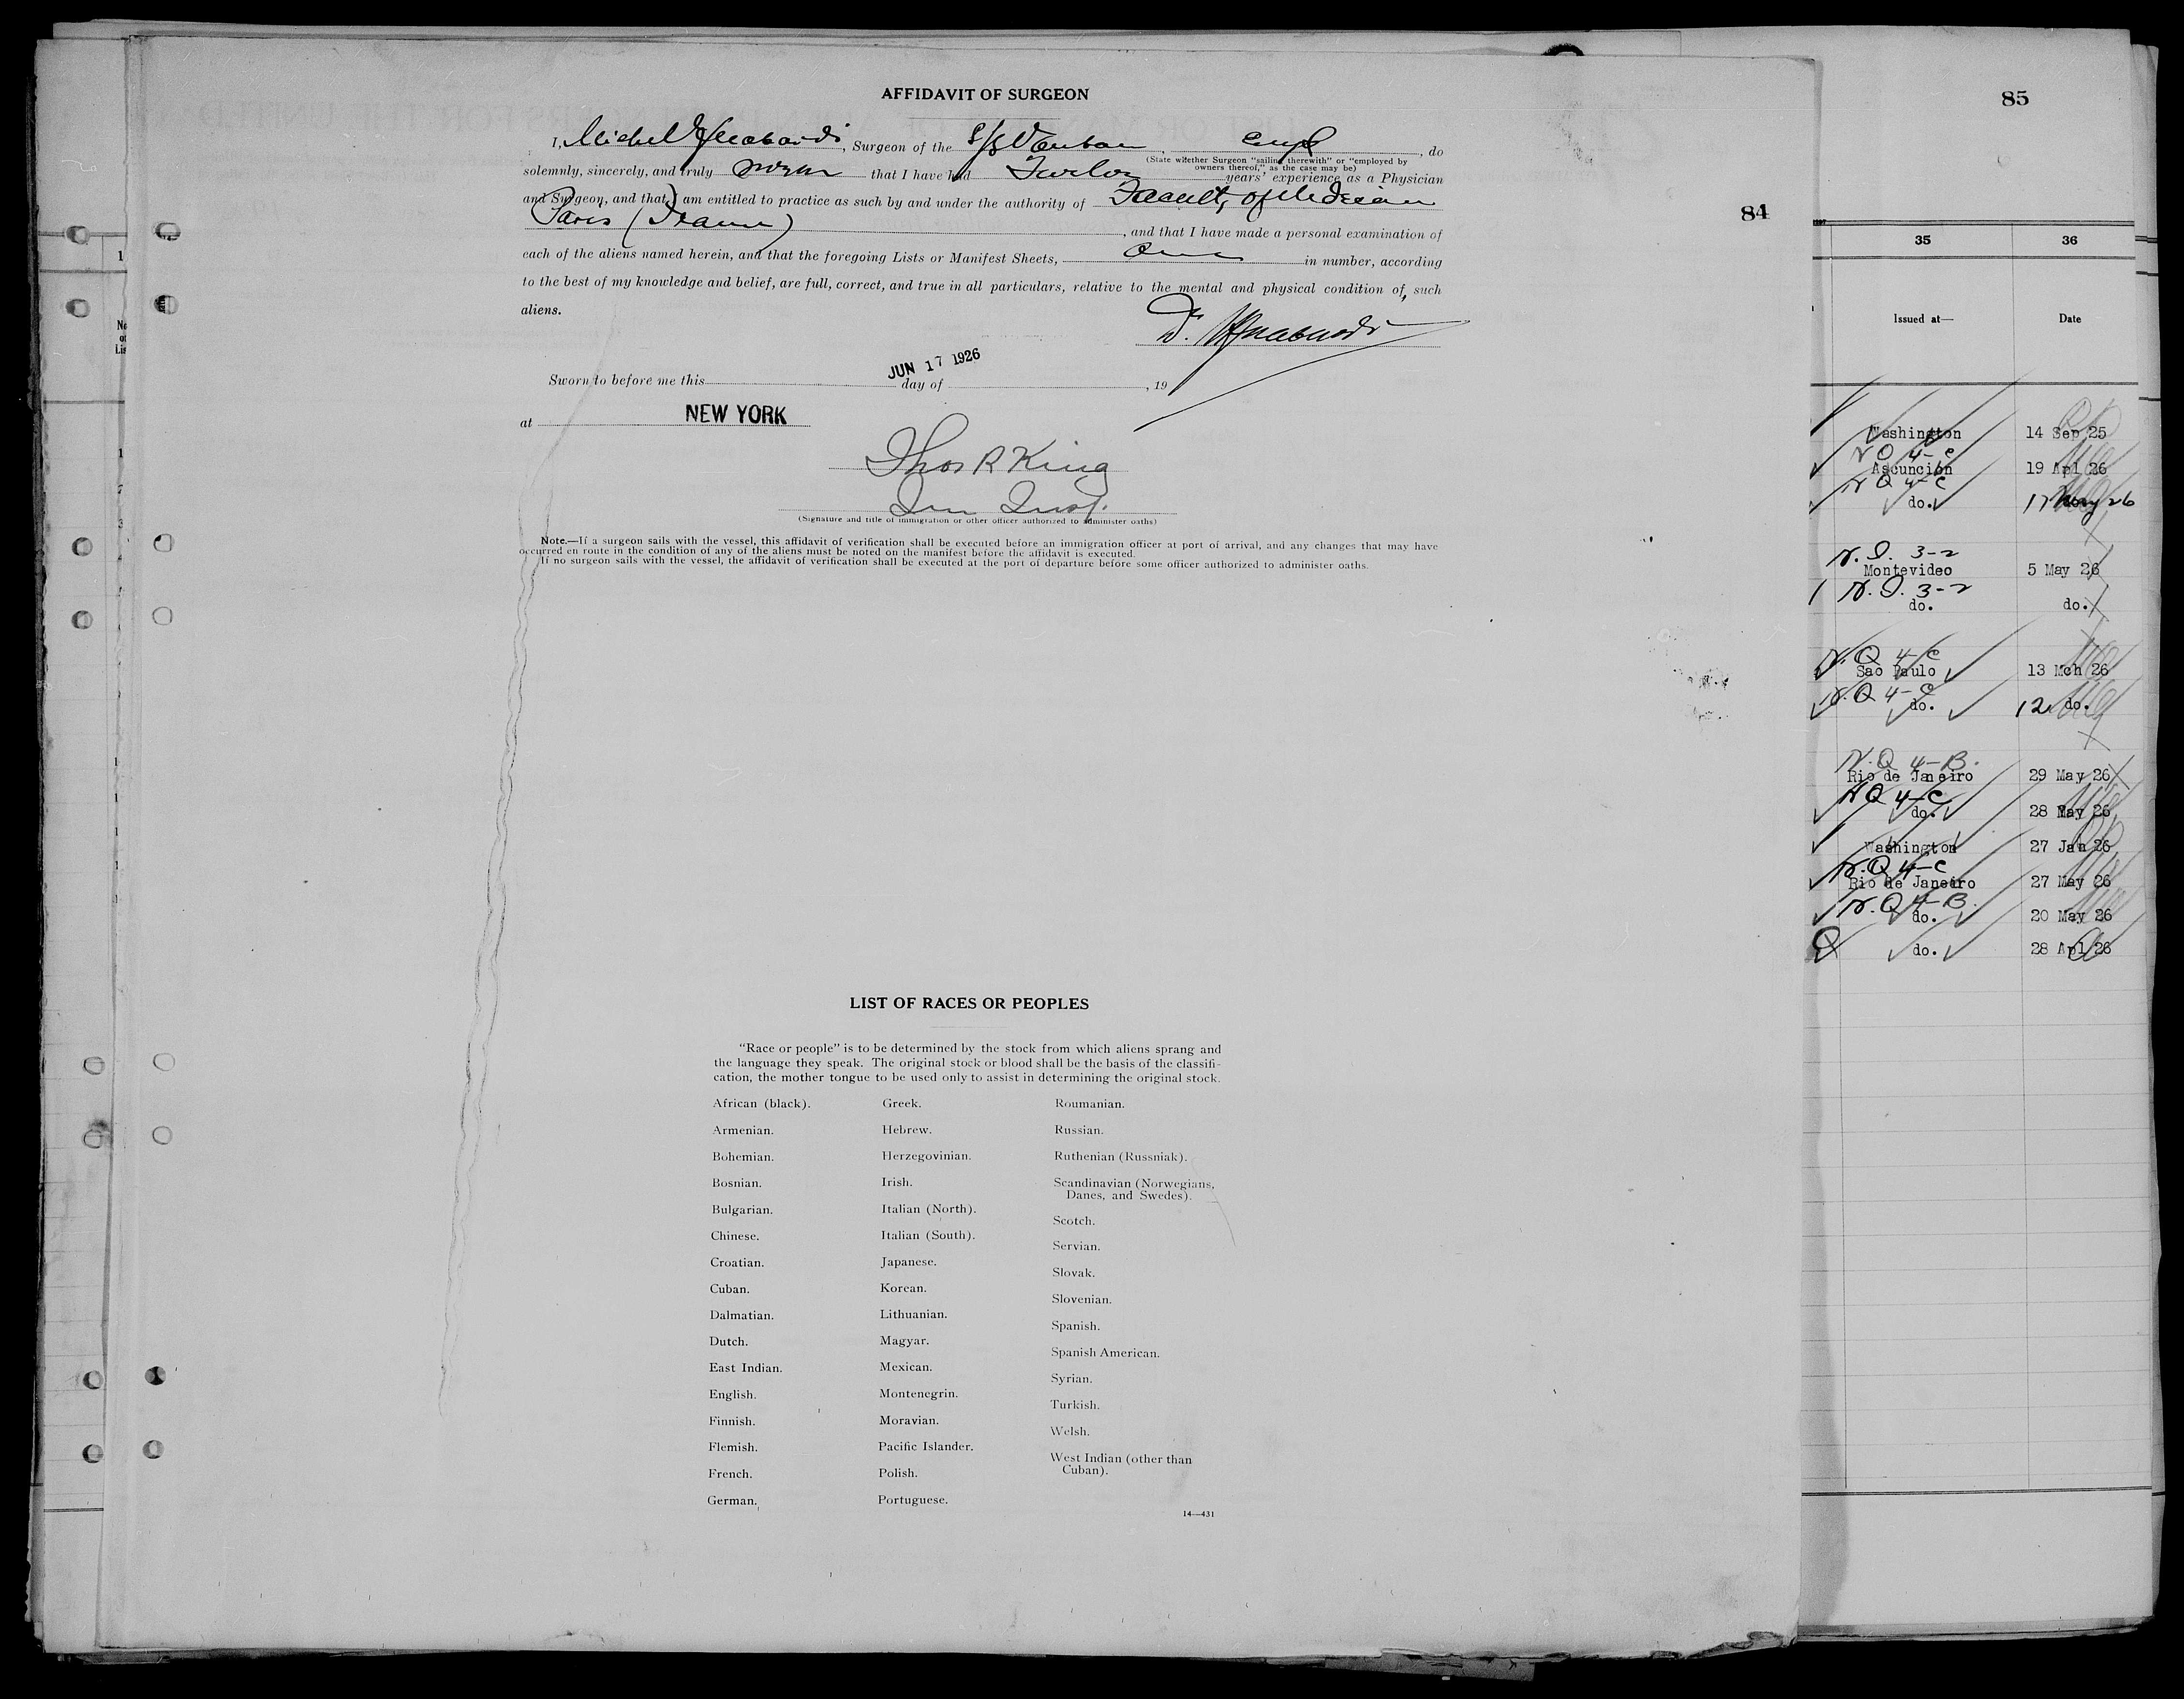 AFFIDAVIT OF SURGEON
I, Michel, Surgeon of the S/S Vauban, Empl, do
(State whether Surgeon "sailing therewith" or "employed by
owners thereof," as the case may be)
solemnly, sincerely, and truly swear that I have had Twelve years' experience as a Physician
and Surgeon, and that I am entitled to practice as such by and under the authority of Faculty of Medicine
Paris (France), and that I have made a personal examination of
each of the aliens named herein, and that the foregoing Lists or Manifest Sheets, in number, according
to the best of my knowledge and belief, are full, correct, and true in all particulars, relative to the mental and physical condition of such
aliens.
Dr.
JUN 17 1926
Sworn to before me this day of , 19
at NEW YORK
Thos R King
Imm Insp.
(Signature and title of immigration or other officer authorized to administer oaths)
Note.—If a surgeon sails with the vessel, this affidavit of verification shall be executed before an immigration officer at port of arrival, and any changes that may have
occurred en route in the condition of any of the aliens must be noted on the manifest before the affidavit is executed.
If no surgeon sails with the vessel, the affidavit of verification shall be executed at the port of departure before some officer authorized to administer oaths.
84
LIST OF RACES OR PEOPLES
"Race or people" is to be determined by the stock from which aliens sprang and
the language they speak. The original stock or blood shall be the basis of the classifi-
cation, the mother tongue to be used only to assist in determining the original stock.
African (black).
Armenian.
Bohemian.
Bosnian.
Bulgarian.
Chinese.
Croatian.
Cuban.
Dalmatian.
Dutch.
East Indian.
English.
Finnish.
Flemish.
French.
German.
Greek.
Hebrew.
Herzegovinian.
Irish.
Italian (North).
Italian (South).
Japanese.
Korean.
Lithuanian.
Magyar.
Mexican.
Montenegrin.
Moravian.
Pacific Islander.
Polish.
Portuguese.
Roumanian.
Russian.
Ruthenian (Russniak).
Scandinavian (Norwegians,
Danes, and Swedes).
Scotch.
Servian.
Slovak.
Slovenian.
Spanish.
Spanish American.
Syrian.
Turkish.
Welsh.
West Indian (other than
Cuban).
14—431
85
35 36
Issued at— Date
Washington 14 Sep 25
N Q 4-C
Asuncion 19 Apl 26
N Q 4-C
do. 17 May 26
N. I. 3-2
Montevideo 5 May 26
N. I. 3-2
do. do.
N. Q 4-C
Sao Paulo 13 Mch 26
N. Q 4-C
do. 12 do.
N. Q 4-B.
Rio de Janeiro 29 May 26
N Q 4-C
do. 28 May 26
Washington 27 Jan 26
N. Q 4-C
Rio de Janeiro 27 May 26
N. Q 4-B.
do. 20 May 26
Q do. 28 Apl 26